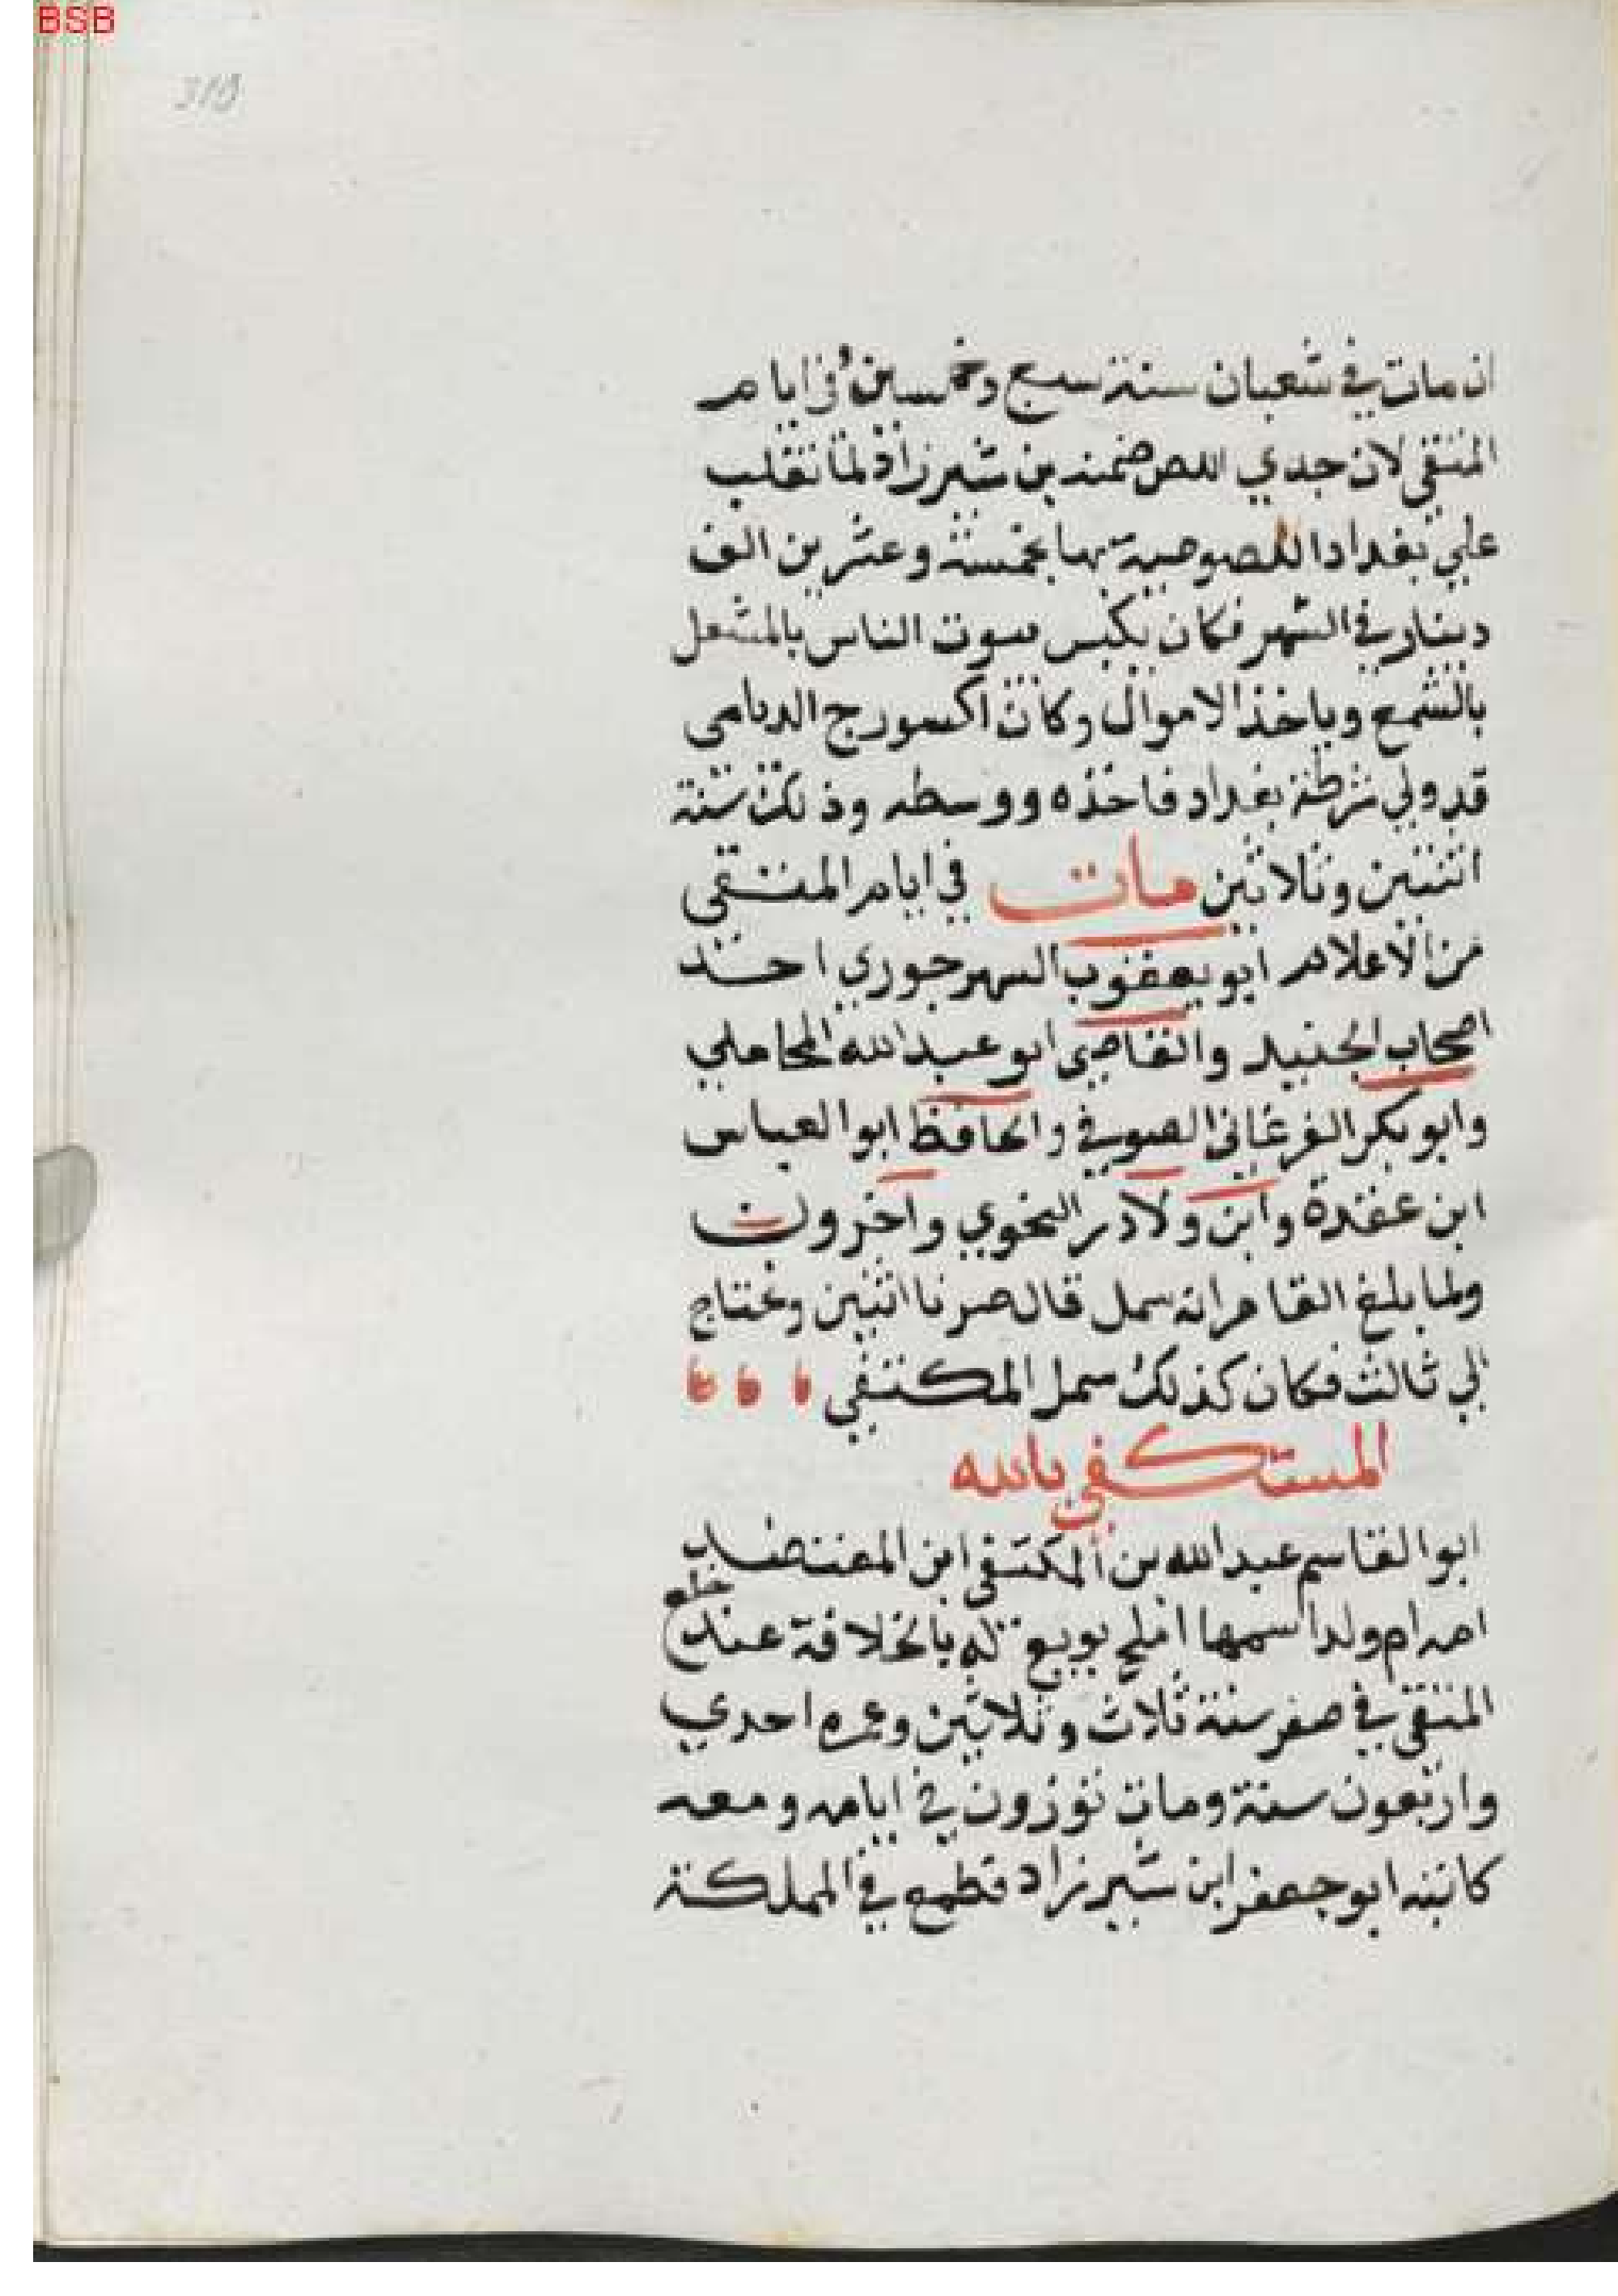 BSB
318
ان مات في شعبان سنة سبع وخمسين وفي ايام
المتقي لان جدي اللص ضمنه بن شيرزاد لما تقلب
علي بغداد اللصوصية بها بخمسة وعشرين الف
دينار في الشهر فكان يكبس بيوت الناس بالمشعل
بالشمع وياخذ الاموال وكان اكسورج الديامى
قد ولي شرطة بغداد فاخذه ووسطه وذلك سنة
اثنتين وثلاثين مات في ايام المتقى
من الاعلام ابو يعقوب السهرجوري احد
اصحاب الجنيد والقاضى ابو عبد الله المحاملي
وابو بكر الفرغانى الصوفي والحافظ ابو العباس
ابن عقدة وابن ولادر النحوي واخرون
ولما بلغ القاهر انه سمل قال صرنا اثنين ونحتاج
الي ثالث فكان كذلك سمل المكتفي
المستكفى بالله
ابو القاسم عبد الله بن المكتفى ابن المعتضد
امه ام ولد اسمها املح بويع له بالخلافة عند خلع
المتقى في صفر سنة ثلاث وثلاثين وعمره احدي
واربعون سنة ومات توزون في ايامه ومعه
كاتبه ابو جعفر ابن شيرزاد فطمع في المملكة